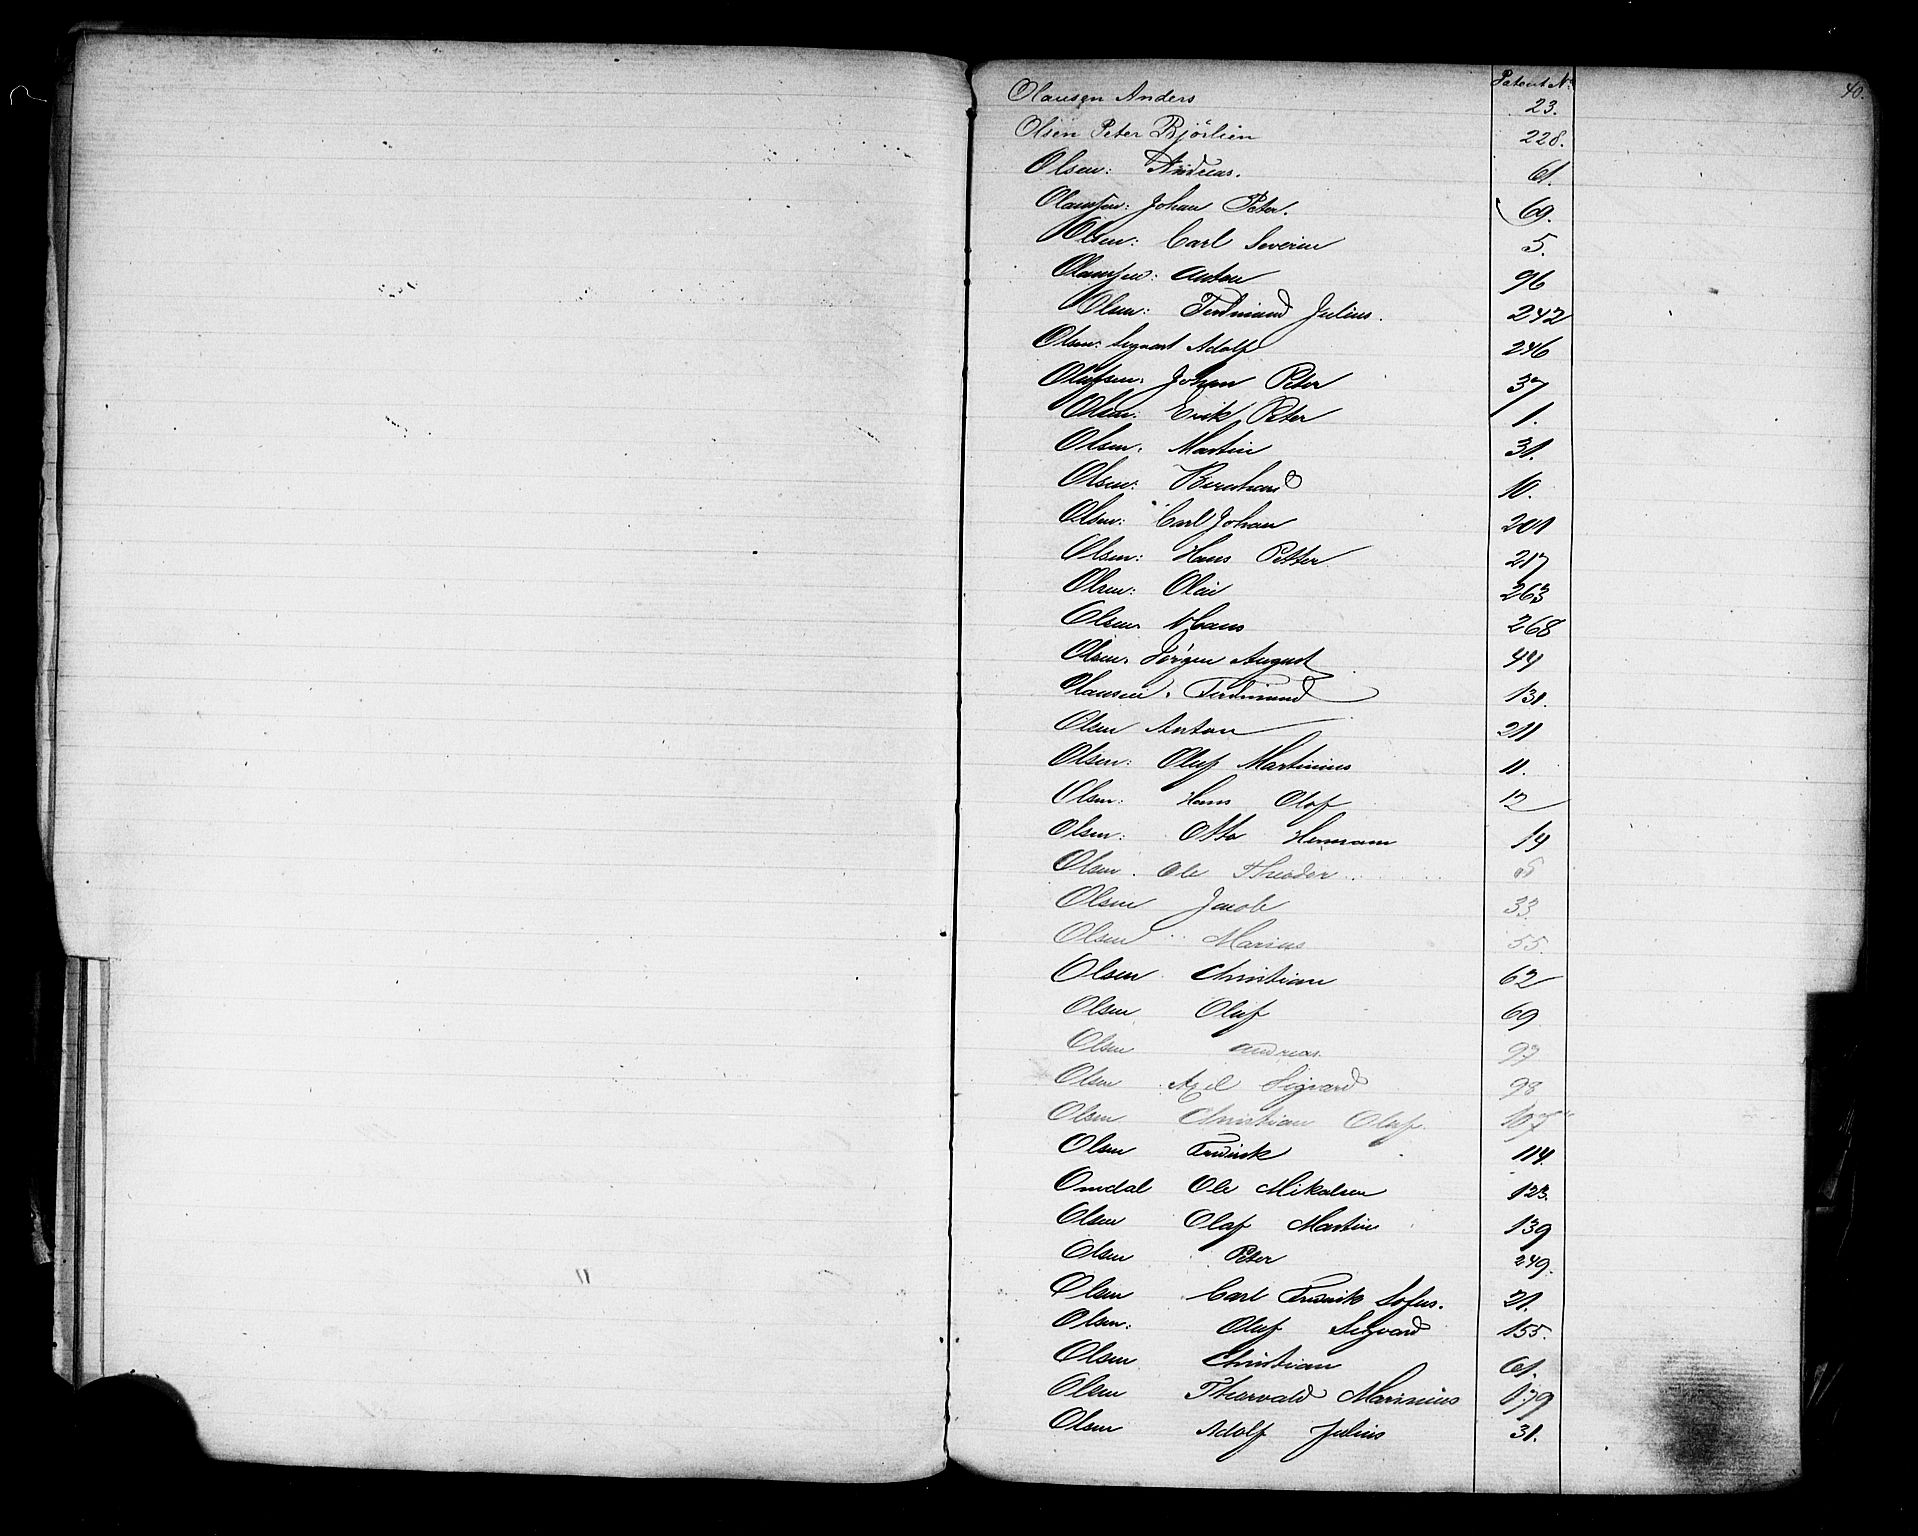 Patent No. 40.
Olausen Anders 23.
Olsen Peter Bjørlien 228.
Olsen: Andreas. 61.
Olaussen: Johan Peter. 69.
Olsen: Carl Severin 5.
Olaussen: Anton 96
Olsen: Ferdinand Julius. 242
Olsen: Sigvart Adolf 246
Olufsen: Johan Peter 37
Olsen: Erik Peter 1.
Olsen: Martin 31.
Olsen: Bernhard 10.
Olsen: Carl Johan 201
Olsen: Hans Petter 217
Olsen: Olai 263
Olsen. Hans 268
Olsen. Jørgen August 44
Olausen. Ferdinand 131.
Olsen Anton 211
Olsen: Oluf Martinius 11.
Olsen: Hans Olof 12
Olsen: Otto Hermann 14
Olsen. Ole Theodor
Olsen Jacob 33.
Olsen Marius 55.
Olsen Christian 62
Olsen Oluf 69
Olsen Andreas. 97
Olsen Axel Sigvard 98
Olsen Christian Oluf. 107
Olsen Fredrik 114.
Omdal Ole Mikalsen 123.
Olsen Olaf Martin 139
Olsen Peter 249.
Olsen Carl Fredrik Sofus. 21.
Olsen: Oluf Sigvard 155.
Olsen Christian 61.
Olsen Thorvald Marinius 179
Olsen Adolf Julius 31.